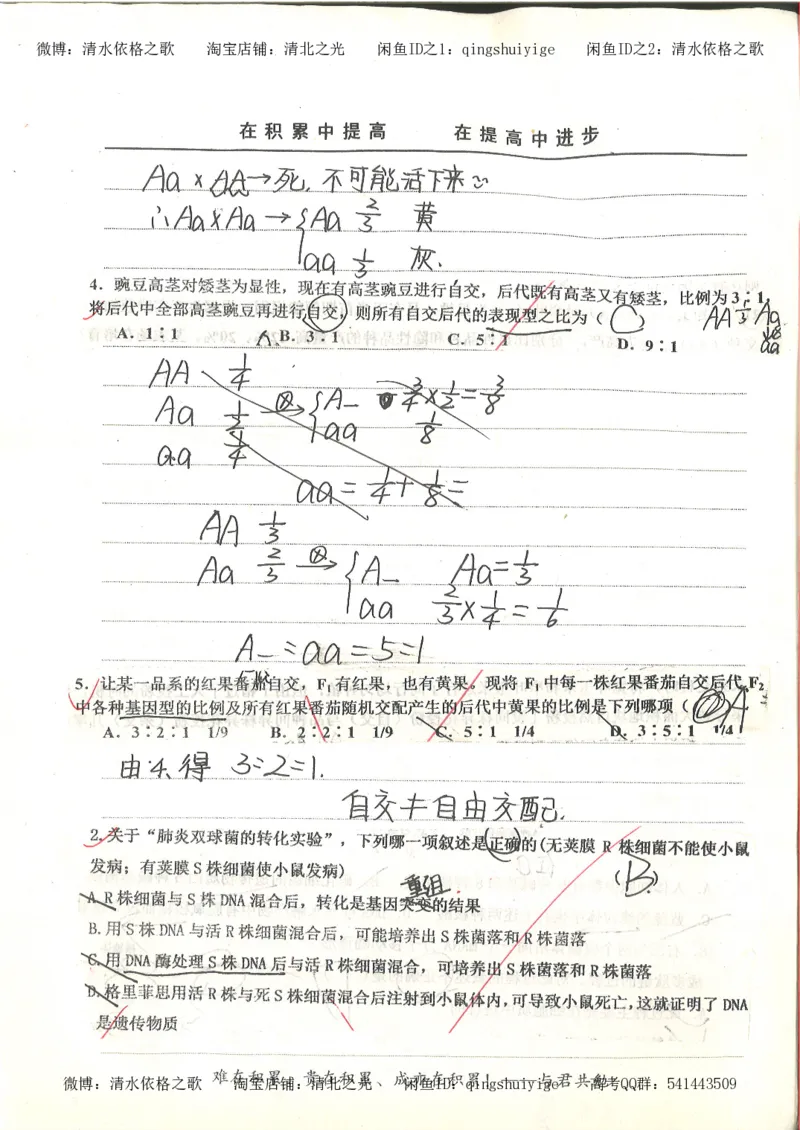 微博：清水依格之歌 淘宝店铺：清北之光 闲鱼ID之1：qingshuiyige 闲鱼ID之2：清水依格之歌
在积累中提高 在提高中进步
Aa × AA → 死, 不可能活下来
∴ Aa × Aa → { Aa 2/3 黄
aa 1/3 灰.
4．豌豆高茎对矮茎为显性，现在有高茎豌豆进行自交，后代既有高茎又有矮茎，比例为 3：1，
将后代中全部高茎豌豆再进行自交，则所有自交后代的表现型之比为（ C ） AA 1/3 Aa 2/3
aa
A．1：1 B．3：1 C．5：1 D．9：1
AA 1/4
Aa 1/2 ⊗→ { A_ 3/4×1/2=3/8
aa 1/8
aa 1/4
aa = 1/4 + 1/8 =
AA 1/3
Aa 2/3 ⊗→ { A_ Aa=1/3
aa 2/3×1/4=1/6
A_：aa=5：1
5．让某一品系的红果番茄自交，F₁有红果，也有黄果。现将 F₁中每一株红果番茄自交后代 F₂
中各种基因型的比例及所有红果番茄随机交配产生的后代中黄果的比例是下列哪项（ A
A．3：2：1 1/9 B．2：2：1 1/9 C．5：1 1/4 D．3：5：1 1/4
由4.得 3：2：1.
自交≠自由交配.
2．关于“肺炎双球菌的转化实验”，下列哪一项叙述是正确的(无荚膜 R 株细菌不能使小鼠
发病；有荚膜 S 株细菌使小鼠发病) (B)
重组.
A.R株细菌与 S 株 DNA 混合后，转化是基因突变的结果
B.用 S 株 DNA 与活 R 株细菌混合后，可能培养出 S 株菌落和 R 株菌落
C.用 DNA 酶处理 S 株 DNA 后与活 R 株细菌混合，可培养出 S 株菌落和 R 株菌落
D.格里菲思用活 R 株与死 S 株细菌混合后注射到小鼠体内，可导致小鼠死亡，这就证明了 DNA
是遗传物质
难在积累、贵在积累、成亦在积累！——与君共勉
微博：清水依格之歌 淘宝店铺：清北之光 闲鱼ID：qingshuiyige 高考QQ群：541443509